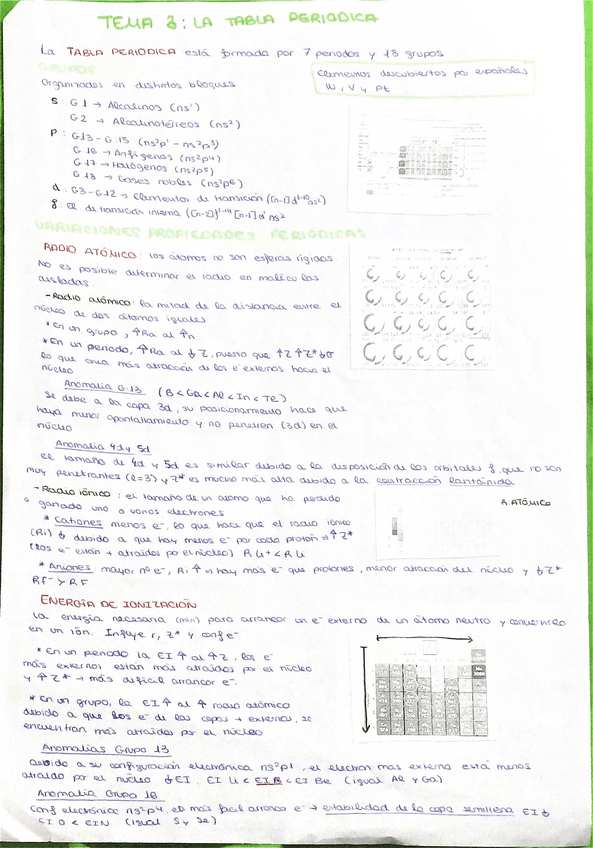 TEMA 3: LA TABLA PERIODICA
La TABLA PERIODICA está formada por 7 periodos y 18 grupos
GRUPOS
Elementos descubiertos por españoles
W, V y Pt
Organizados en distintos bloques
S: G1 → Alcalinos (ns¹)
G2 → Alcalinotérreos (ns²)
P: G13 - G15 (ns²p¹ - ns²p³)
G16 → Anfígenos (ns²p⁴)
G17 → Halógenos (ns²p⁵)
G18 → Gases nobles (ns²p⁶)
d: G3-G12 → Elementos de transición ([n-1]d¹⁻¹⁰ns²)
f: El. de transición interna ([n-2]f¹⁻¹⁴[n-1]d¹ns²
VARIACIONES PROPIEDADES PERIÓDICAS
RADIO ATÓMICO: los átomos no son esferas rígidas
No es posible determinar el radio en moléculas
aisladas
- Radio atómico: la mitad de la distancia entre el
núcleo de dos átomos iguales
* En un grupo, ↑Ra al ↑n
* En un periodo, ↑Ra al ↓Z, puesto que ↑Z ↑Z* ↓σ
lo que crea más atracción de los e⁻ externos hacia el
núcleo
Anomalía G.13 (B < Ga < Al < In < Te)
Se debe a la capa 3d, su posicionamiento hace que
haya menor apantallamiento y no penetren (3d) en el
núcleo
Anomalía 4d y 5d
El tamaño de 4d y 5d es similar debido a la disposición de los orbitales f, que no son
muy penetrantes (l=3) y Z* es mucho más alta debido a la contracción lantánida
- Radio iónico: el tamaño de un átomo que ha perdido
o ganado uno o varios electrones
R. ATÓMICO
* Cationes menos e⁻, lo que hace que el radio iónico
(Ri) ↓ debido a que hay menos e⁻ por cada protón ⇒ ↑Z*
(los e⁻ están + atraídos por el núcleo) R Li⁺ < R Li
* Aniones mayor nº e⁻, Ri ↑ ⇒ hay más e⁻ que protones, menor atracción del núcleo y ↓Z*
RF⁻ > RF
ENERGÍA DE IONIZACIÓN
La energía necesaria (mín) para arrancar un e⁻ externo de un átomo neutro y convertirlo
en un ión. Influye r, Z* y conf e⁻
* En un periodo la EI ↑ al ↑Z, los e⁻
más externos están más atraídos por el núcleo
y ↑Z* → más difícil arrancar e⁻.
* En un grupo, la EI ↑ al ↑ radio atómico
debido a que los e⁻ de las capas + externas, se
encuentran más atraídos por el núcleo
Anomalías Grupo 13
Debido a su configuración electrónica ns²p¹, el electrón más externo está menos
atraído por el núcleo ↓EI. EI Li < EI B < EI Be (igual Al y Ga)
Anomalía Grupo 16
Conf electrónica ns²p⁴, es más fácil arrancar e⁻ → estabilidad de la capa semillena EI ↓
EI O < EI N (igual S y Se)